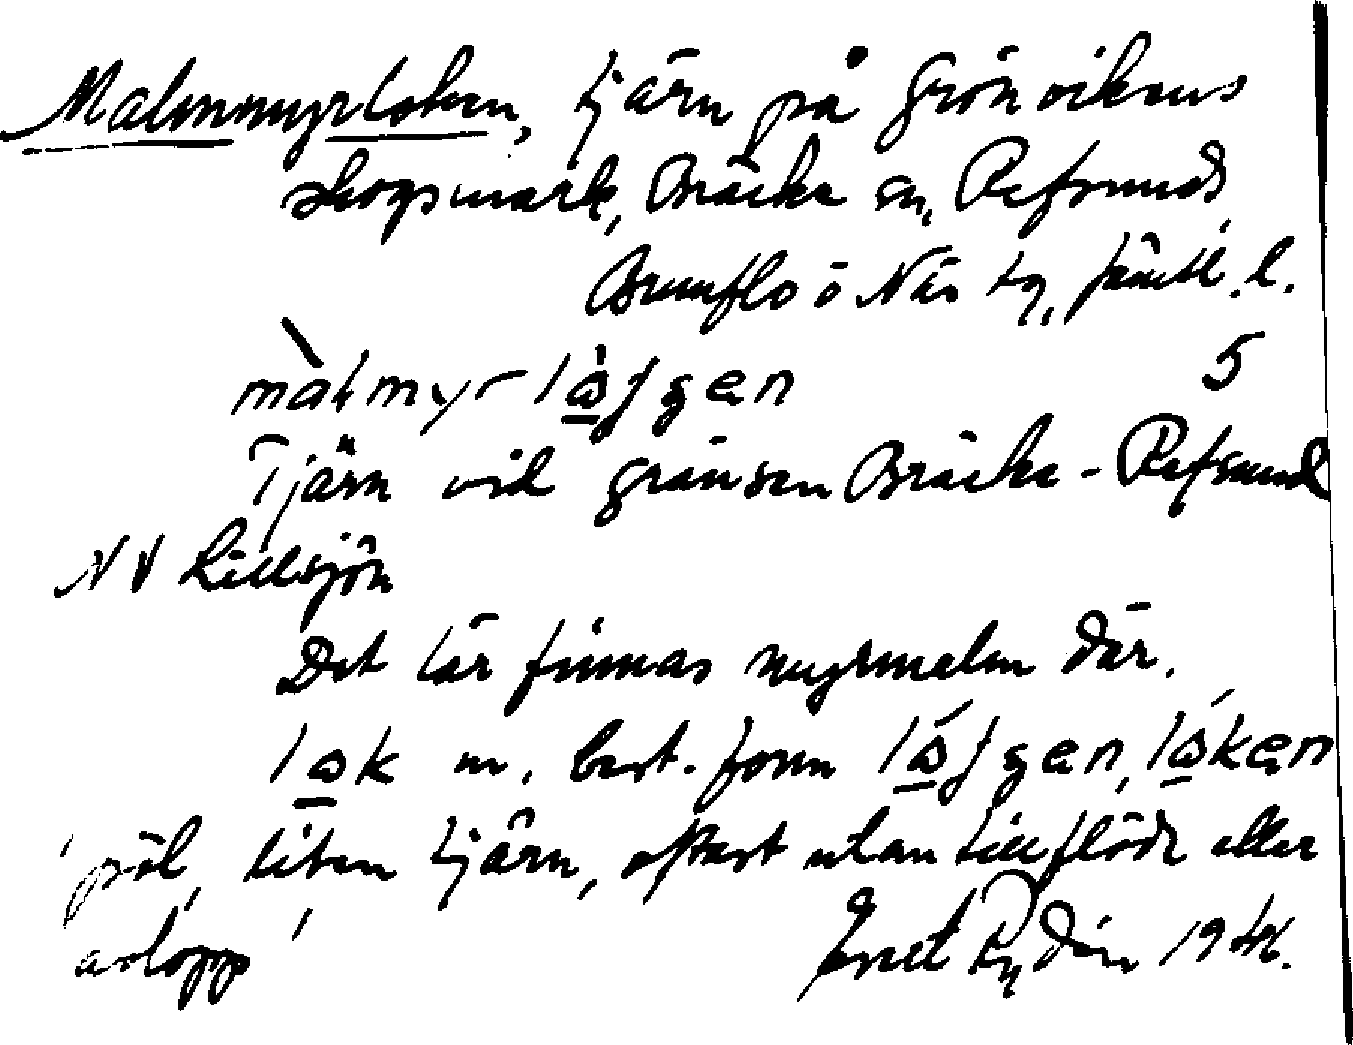 Malmmyrloken, tjärn på Grönvikens
skogsmark, Bräcke sn, Refsund,
Brunflo o Näs tg, Jämtl. l.
màlmyrlåʃgen 5
Tjärn vid gränsen Bräcke - Refsund
NV Lillsjön
Det lär finnas myrmalm där.
lok m. best. form låʃgen, låken
'pöl, liten tjärn, oftast utan tillflöde eller
avlopp'
Rydén 194